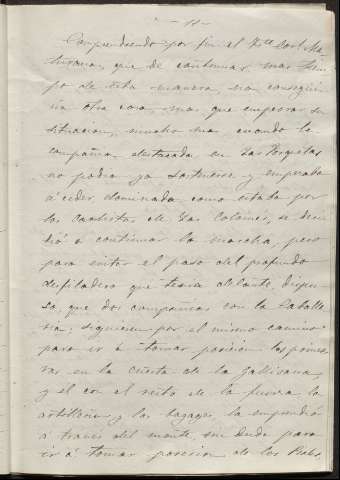 - 11 -
Comprendiendo por fin el Bri. Dort Ma
turana, que de continuar mas tiem
po de esta manera, no consegui
ria otra cosa, mas que empeorar su
situacion, mucho mas cuando la
compañia destacada en Las Porquetas
no podia ya sostenerse y empezaba
á ceder, dominada como estaba por
los carlistas de Las Colomes, se deci
dió á continuar la marcha, pero
para evitar el paso del profundo
desfiladero que tenia delante, dispu
so, que dos compañias con la Caballe
ria siguiesen por el mismo camino
para ir á tomar posicion las prime
ras en la cuesta de la Gallisana,
y él con el resto de la fuerza la
artilleria y los bagages, la emprendió
á traves del monte, sin duda para
ir á tomar posicion de los